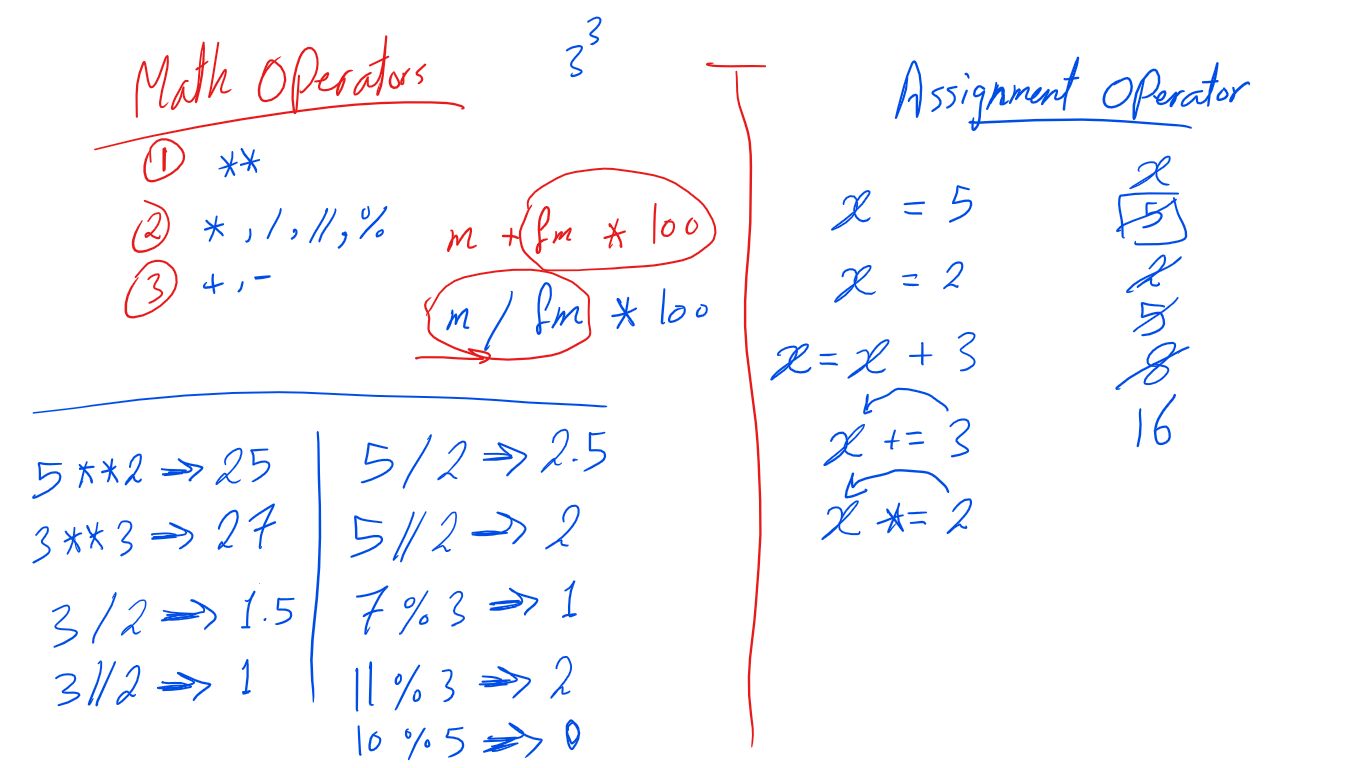 Math Operators
3³
① **
② *, /, //, %
③ +, -
m + fm * 100
m / fm * 100
5**2 ⇒ 25
3**3 ⇒ 27
3/2 ⇒ 1.5
3//2 ⇒ 1
5/2 ⇒ 2.5
5//2 ⇒ 2
7%3 ⇒ 1
11%3 ⇒ 2
10%5 ⇒ 0
Assignment Operator
x = 5
x = 2
x = x + 3
x += 3
x *= 2
x
5
2
5
8
16